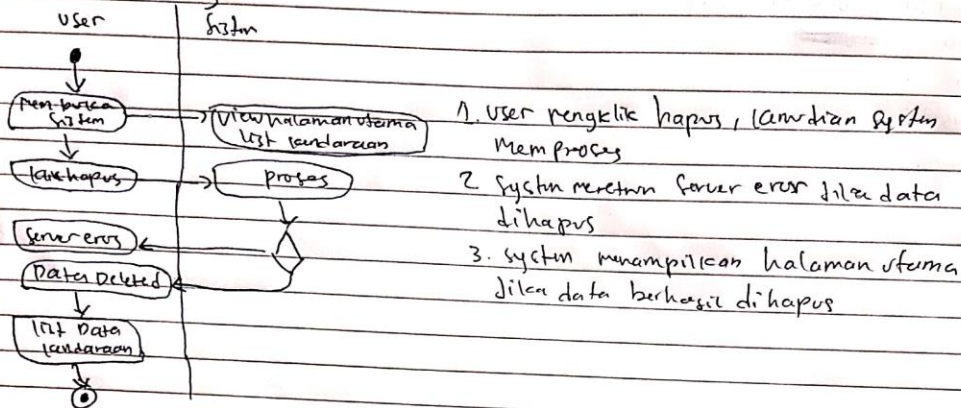 User
Sistem
Membuka
Sistem
View halaman utama
List kendaraan
klik hapus
proses
Server eror
Data Deleted
list Data
kendaraan
1. User mengklik hapus, kemudian system
memproses
2 System mereturn server eror jika data
dihapus
3. system menampilkan halaman utama
Jika data berhasil dihapus